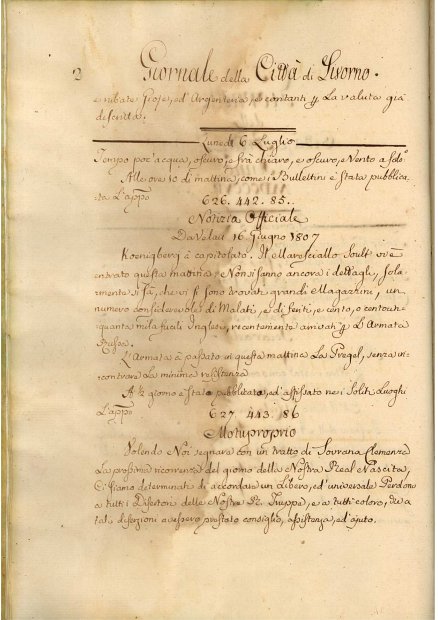 2 Giornale della Città di Livorno.
e rubate Gioje, ed' Argenteria, e contanti p La valuta già
descritta.
Lunedì 6. Luglio
Tempo poc'acqua, oscuro, e frà chiaro, e oscuro, e Vento a
Alle ore 10 di mattina, come i Bullettini è stata pubblica-
ta L'app.o
626. 442. 85.
Notizia Officiale
Da Velad 16 Giugno 1807
Koenigberg à capitolato. Il Maresciallo Soult vi è
entrato questa mattina. Non si sanno ancora i dettagli, sola-
mente si sà, che vi si sono trovati grandi Magazzini, un
numero considerevole di Malati, e di feriti, e cento, o cento cin-
quanta mila fucili Inglesi, recentemente arrivati p L'Armata
Russa.
L'Armata à passato in questa mattina La Pregel, senza in-
contrare La minima resistenza
A ½ giorno è stato pubblicato, ed' affissato nei Soliti Luoghi
L'app.o
627. 443. 86
Motuproprio
Volendo Noi segnare con un tratto di Sovrana Clemenza
La prossima ricorrenza del giorno della Nostra Real Nascita,
Ci siamo determinati di accordare un Libero, ed' universale Perdono
a tutti i Disertori delle Nostre R. Truppe, e a tutti coloro, che a
tali diserzioni avessero prestato consiglio, assistenza, ed' ajuto.